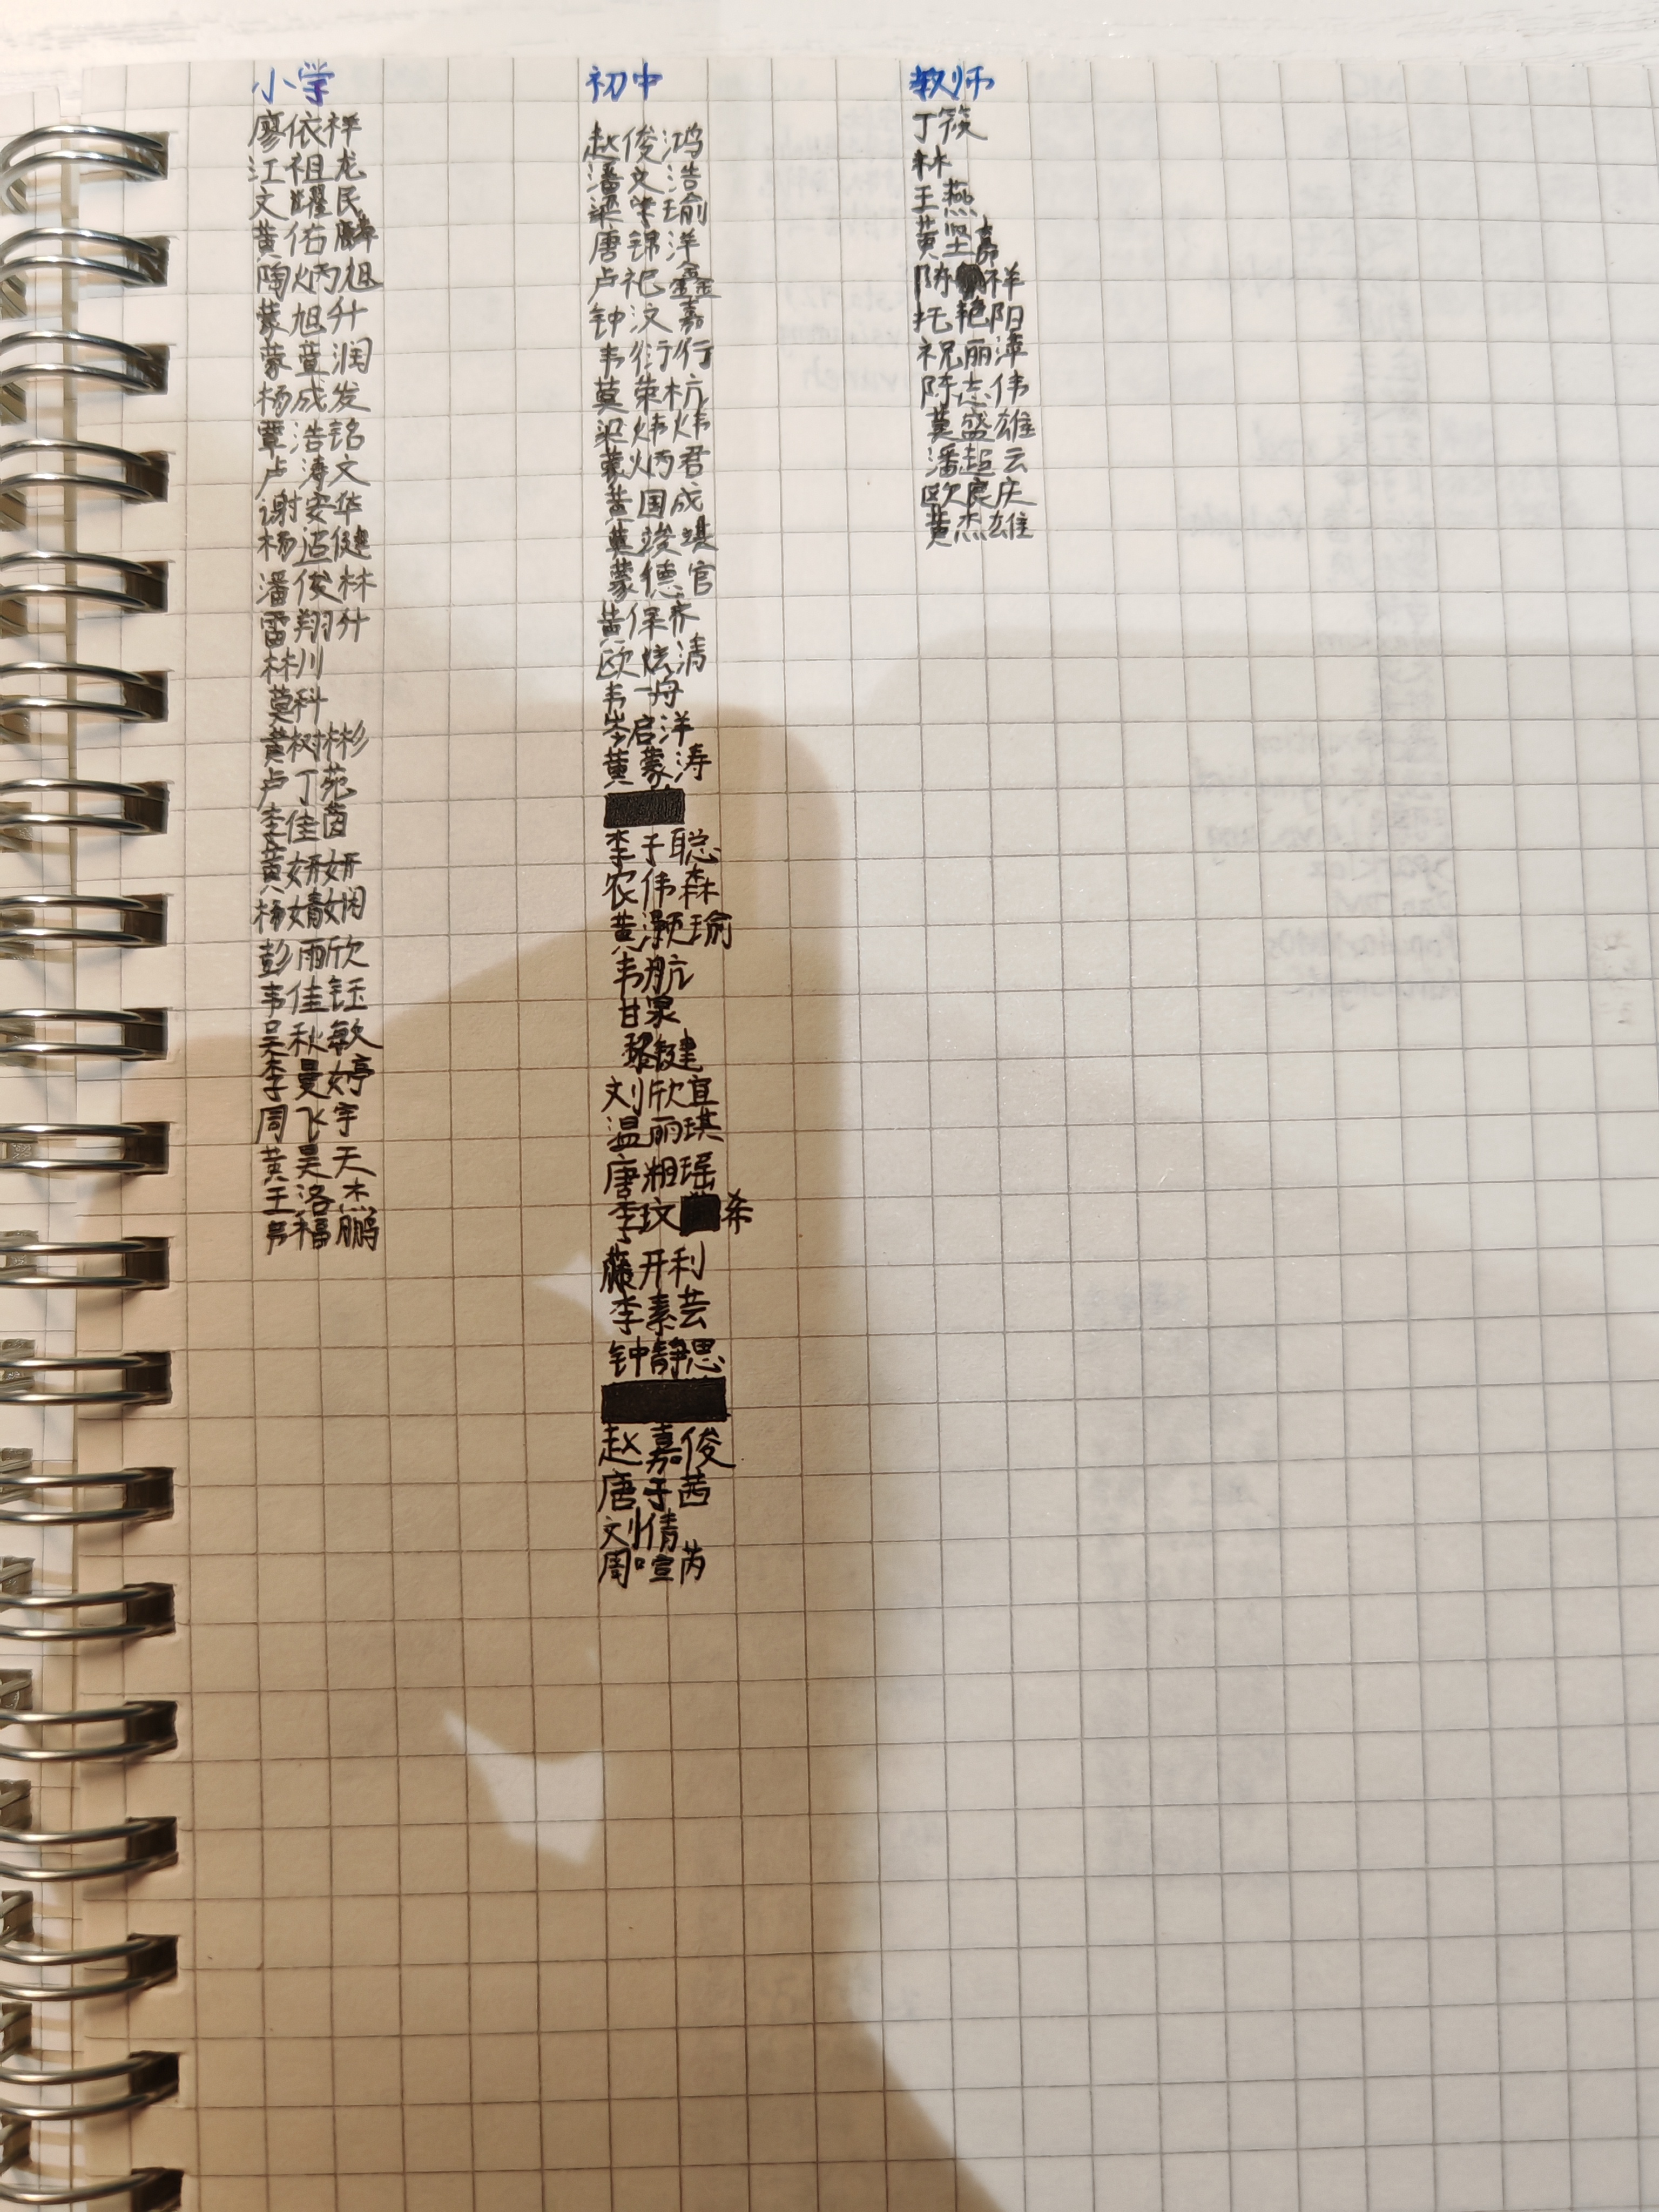 小学
廖依祥
江祖龙
文耀民
黄佑麟
陶炳旭
蒙旭升
蒙萱润
杨成发
覃浩铭
卢涛文
谢安华
杨造健
潘俊林
雷翔升
林川
莫科
黄树彬
卢丁苑
李佳茵
黄妍妍
杨婧娴
彭雨欣
韦佳钰
吴秋敏
李曼婷
周飞宇
黄昊天
王洛杰
韦福鹏
初中
赵俊鸿
潘文浩
梁荣瑜
唐锦洋
卢祀鑫
钟汶嘉
韦衍行
莫荣杭
梁炜炜
蒙炳君
黄国成
莫竣棋
蒙德官
黄保齐
欧炫清
韦一舟
岑启洋
黄蒙涛
李于聪
农伟森
黄灏瑜
韦航
甘泉
黎键
刘欣宜
温丽琪
唐湘瑶
李玟希
藤开利
李素芸
钟静思
赵嘉俊
唐于茜
刘倩
周喧芮
教师
丁筱
林
王燕
黄坚高
陈祥
托艳阳
祝丽漳
陈志伟
莫盛雄
潘超云
欧良庆
黄杰雄